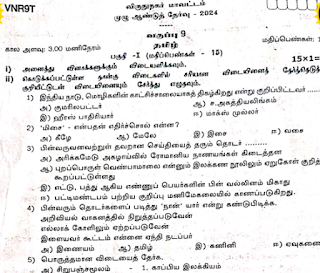 VNR9T
விருதுநகர் மாவட்டம்
முழு ஆண்டுத் தேர்வு - 2024
வகுப்பு 9
கால அளவு: 3.00 மணிநேரம்
தமிழ்
மதிப்பெண்கள்:
பகுதி -I (மதிப்பெண்கள் - 15)
i) அனைத்து வினாக்களுக்கும் விடையளிக்கவும்.
15x1=
ii) கொடுக்கப்பட்டுள்ள நான்கு விடைகளில் சரியான விடையினைத் தேர்ந்தெடுத்து
குறியீட்டுடன் விடையினையும் சேர்த்து எழுதவும்.
1) இந்திய நாடு, மொழிகளின் காட்சிச்சாலையாகத் திகழ்கிறது என்று குறிப்பிட்டவர்
அ) குமரிலபட்டர்
ஆ) ச.அகத்தியலிங்கம்
இ) ஹீராஸ் பாதிரியார்
ஈ) மாக்ஸ் முல்லர்
2) 'மிசை' - என்பதன் எதிர்ச்சொல் என்ன?
அ) கீழே
ஆ) மேலே
இ) இசை
ஈ) வசை
3) பின்வருவனவற்றுள் தவறான செய்தியைத் தரும் தொடர்
அ) அரிக்கமேடு அகழாய்வில் ரோமானிய நாணயங்கள் கிடைத்தன
ஆ) புறப்பொருள் வெண்பாமாலை என்னும் இலக்கண நூலிலும் ஏறுகோள் குறித்து
கூறப்பட்டுள்ளது
இ) எட்டு, பத்து ஆகிய எண்ணுப் பெயர்களின் பின் வல்லினம் மிகாது
ஈ) பட்டிமண்டபம் பற்றிய குறிப்பு மணிமேகலையில் காணப்படுகிறது.
4) பின்வரும் தொடர்களைப் படித்து 'நான்' யார் என்று கண்டுபிடிக்க.
அறிவியல் வாகனத்தில் நிறுத்தப்படுவேன்
எல்லாக் கோளிலும் ஏற்றப்படுவேன்
இளையவர் கூட்டம் என்னை ஏந்தி நடப்பர்
அ) இணையம்
ஆ) தமிழ்
இ) கணினி
ஈ) ஏவுகணை
5) பொருத்தமான விடையைத் தேர்க.
அ) சிறுபஞ்சமூலம் - 1. காப்பிய இலக்கியம்